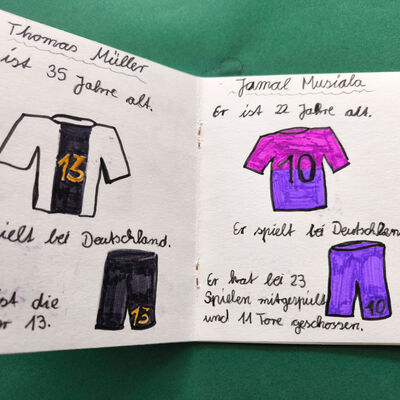 Thomas Müller
ist 35 Jahre alt.
13
ielt bei Deutschland.
ist die
r 13.
13
Jamal Musiala
Er ist 22 Jahre alt.
10
Er spielt bei Deutschlan
Er hat bei 23
Spielen mitgespielt
und 11 Tore geschossen.
10